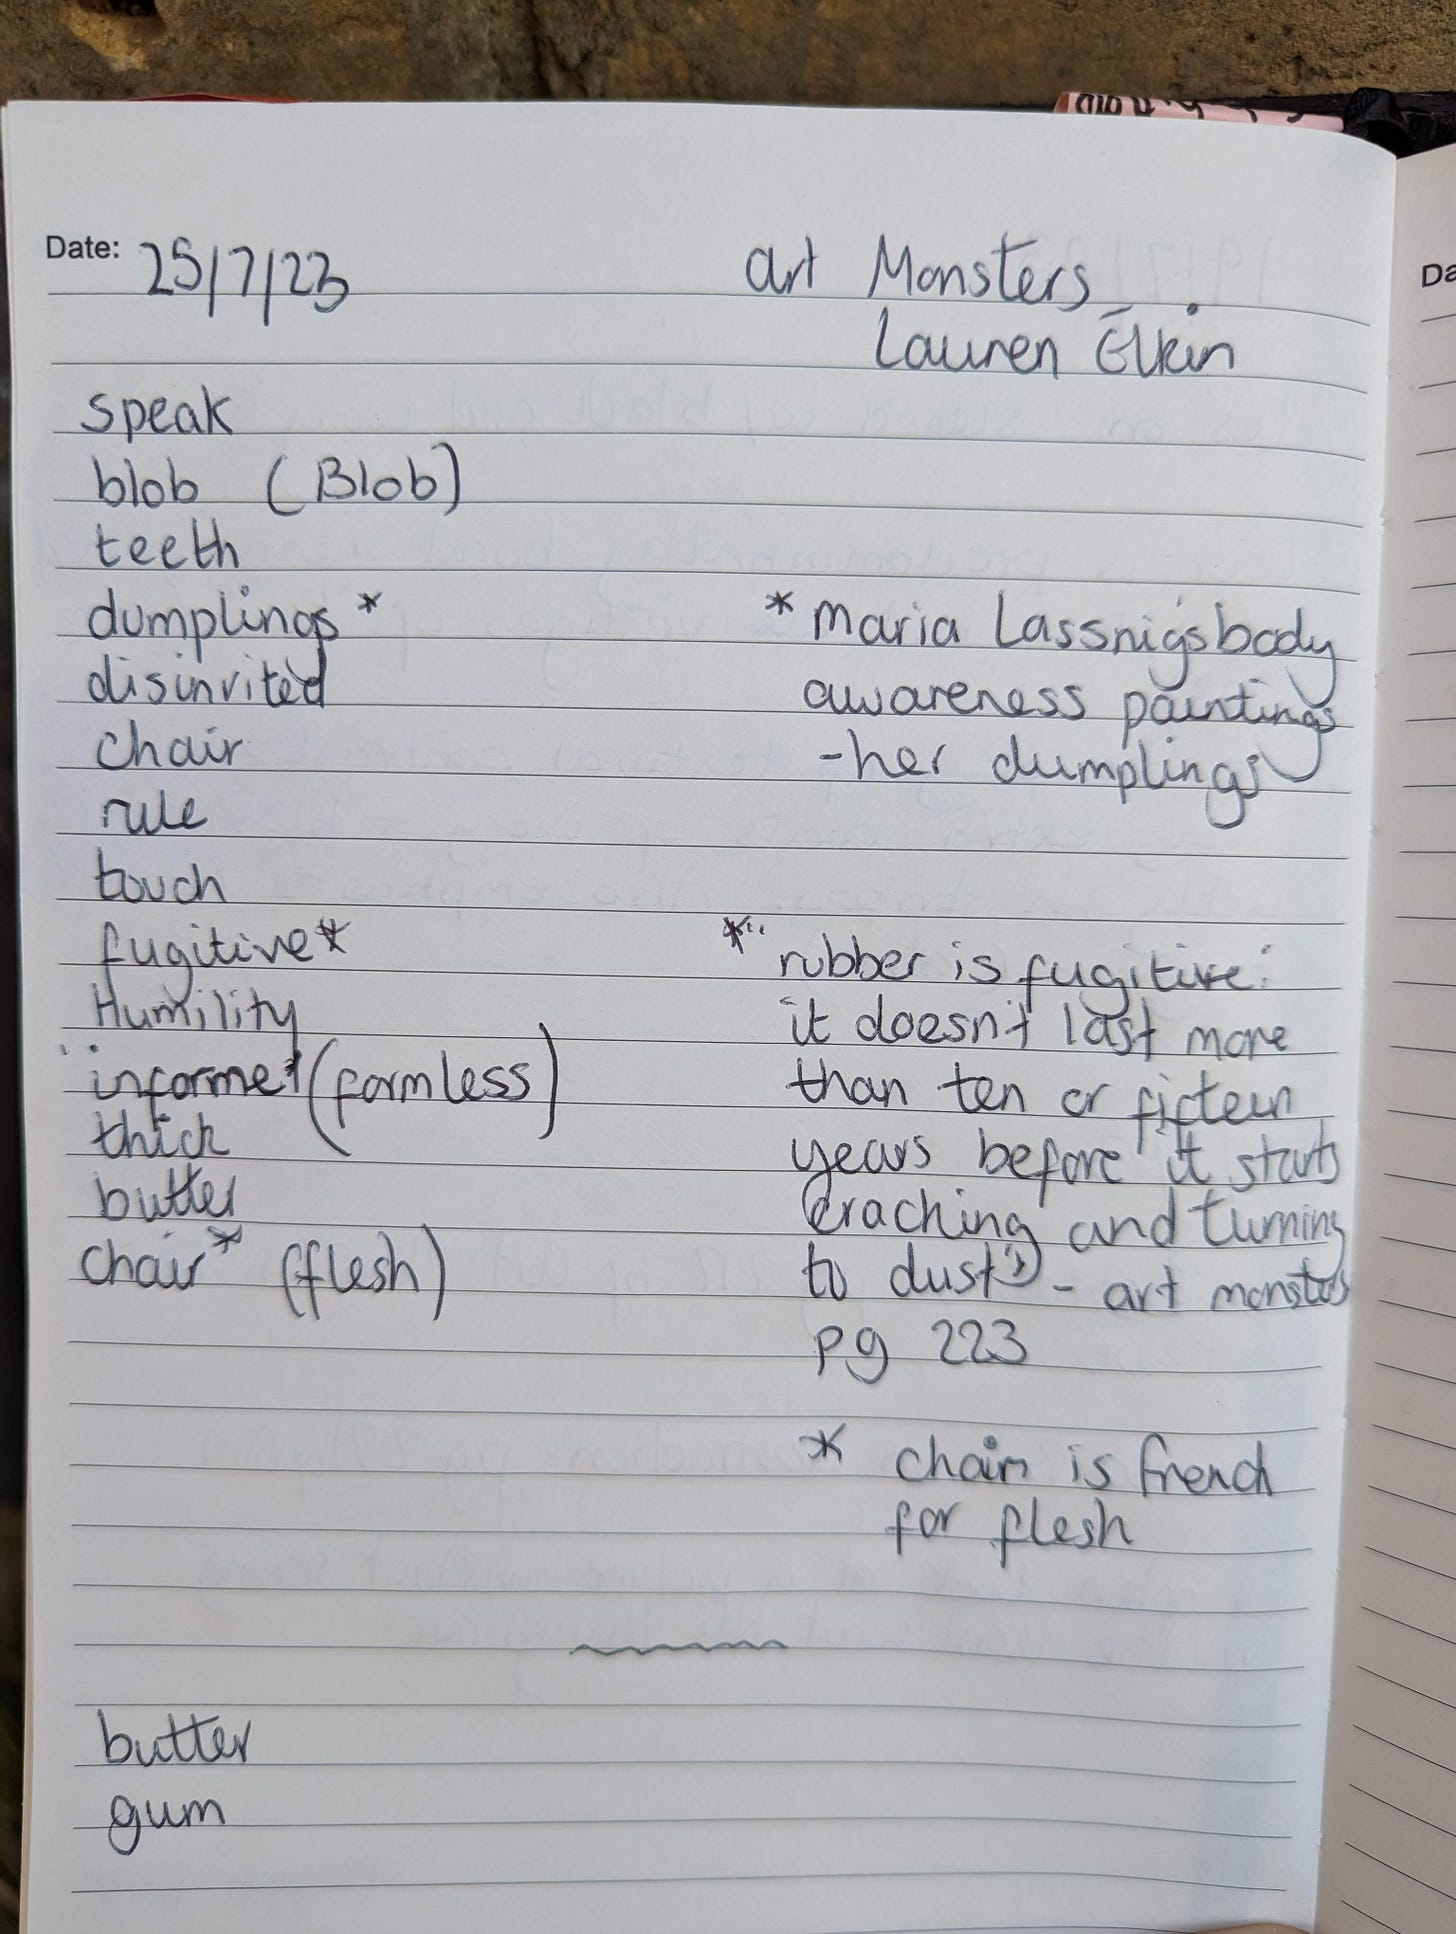 Date: 25/7/23
art Monsters
Lauren Elkin
speak
blob (Blob)
teeth
dumplings *
disinvited
chair
rule
touch
fugitive *
Humility
"informe" (formless)
thick
butter
chair * (flesh)
* Maria Lassnig's body
awareness paintings
- her dumplings
* "rubber is fugitive:
it doesn't last more
than ten or fifteen
years before it starts
craching and turning
to dust" - art monsters
pg 223
* chair is french
for flesh
butter
gum
Da